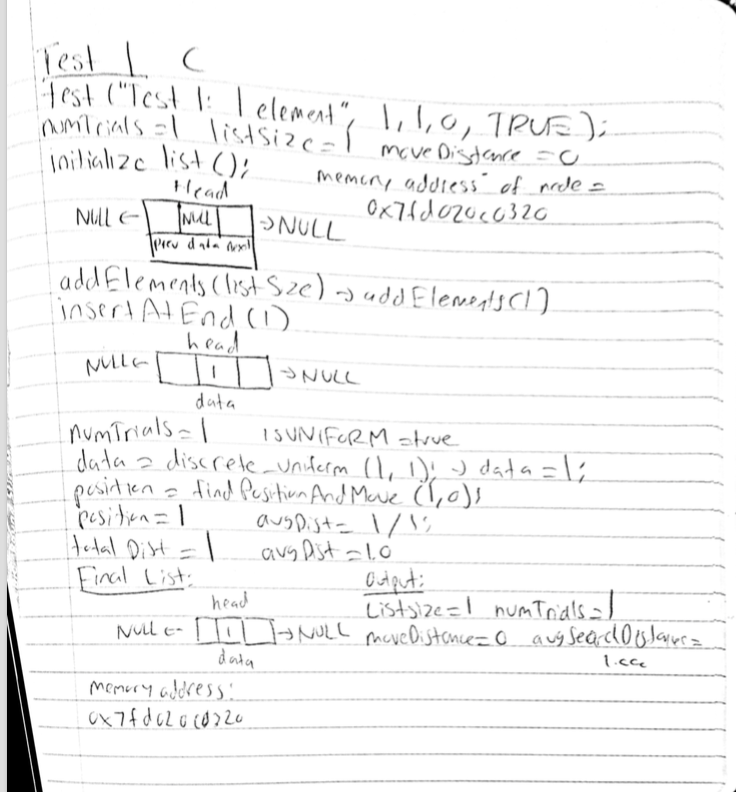 Test 1 C
test ("Test 1: 1 element", 1, 1, 0, TRUE);
numTrials = 1 listSize = 1 moveDistance = 0
initialize list ();
memory address of node =
0x7fd020c0320
Head
NULL ← NULL → NULL
prev data next
addElements (listSize) → addElements(1)
insertAtEnd (1)
head
NULL ← 1 → NULL
data
numTrials = 1 isUNIFORM = true
data = discrete_uniform (1, 1); → data = 1;
position = findPositionAndMove (1,0);
position = 1 avgDist = 1/1;
total Dist = 1 avgDist = 1.0
Final List: Output:
head
Listsize = 1 numTrials = 1
NULL ← 1 → NULL moveDistance = 0 avgSearchDistance =
data 1.000
memory address: